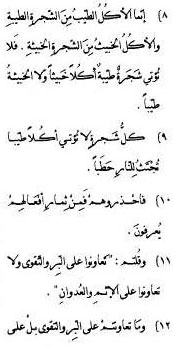 ٨) إنّما الأكُلُ الطّيّبُ مِنَ الشّجرةِ الطّيبةِ
والأكُلُ الخبيثُ مِنَ الشّجرةِ الخبيثةِ. فَلا
تُؤتي شجرةٌ طيّبةٌ أكُلًا خَبيثاً ولا الخبيثةُ
طيّباً.
٩) كلُّ شجرةٍ لا تُؤتي أكُلاً طيّبا
تُجْتَثُّ لِلنّارِ حَطَباً.
١٠) فاحذروهمْ فَمِنْ ثِمارِ أفعَالِهِمْ
يُعرفونَ.
١١) وقُلتم: "تعاونوا على البِرِّ والتّقوى ولا
تعاونوا على الإثمِ والعُدوانِ".
١٢) وما تعاونتم على البِرِّ والتّقوى بلْ على